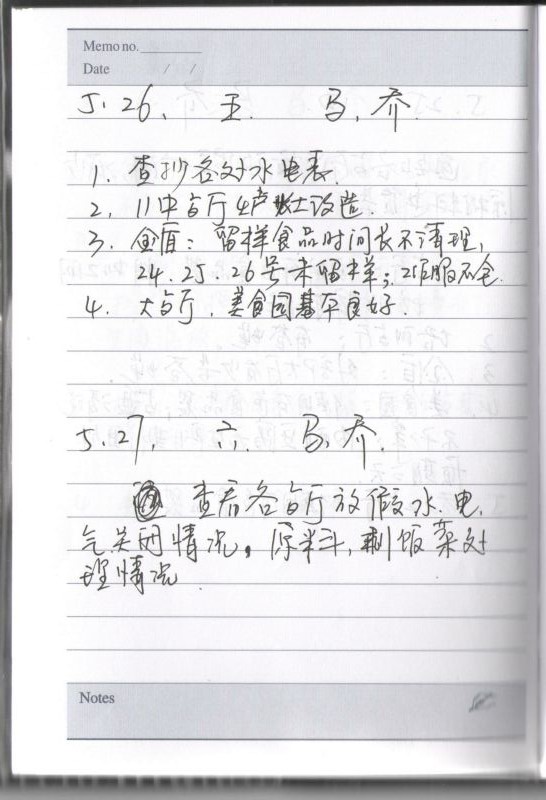 Memo no.
Date / /
5.26. 五 马.乔
1. 查抄各对水电表.
2. 川中台厅生产灶改造.
3. 金值: 留样食品时间长不清理,
24.25.26号未留样; 工作服不全.
4. 大台厅.美食园基本良好.
5.27. 六. 马.乔.
查看各台厅放假水.电.
气关闭情况。原料,剩饭菜对
理情况.
Notes